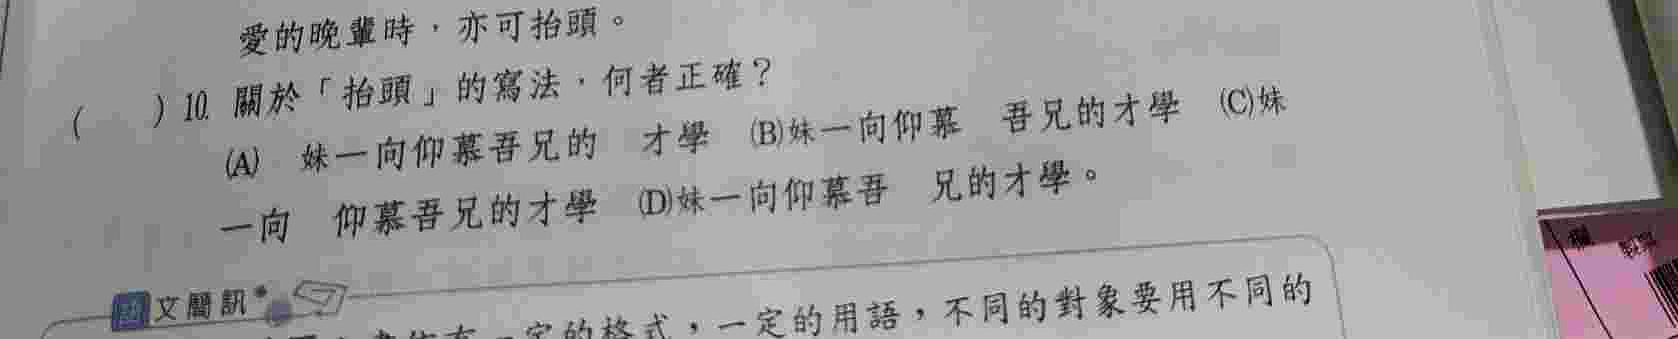 愛的晚輩時，亦可抬頭。
(　　) 10. 關於「抬頭」的寫法，何者正確？
(A)　妹一向仰慕吾兄的　才學　(B)妹一向仰慕　吾兄的才學　(C)妹
一向　仰慕吾兄的才學　(D)妹一向仰慕吾　兄的才學。
文簡訊
定的格式，一定的用語，不同的對象要用不同的